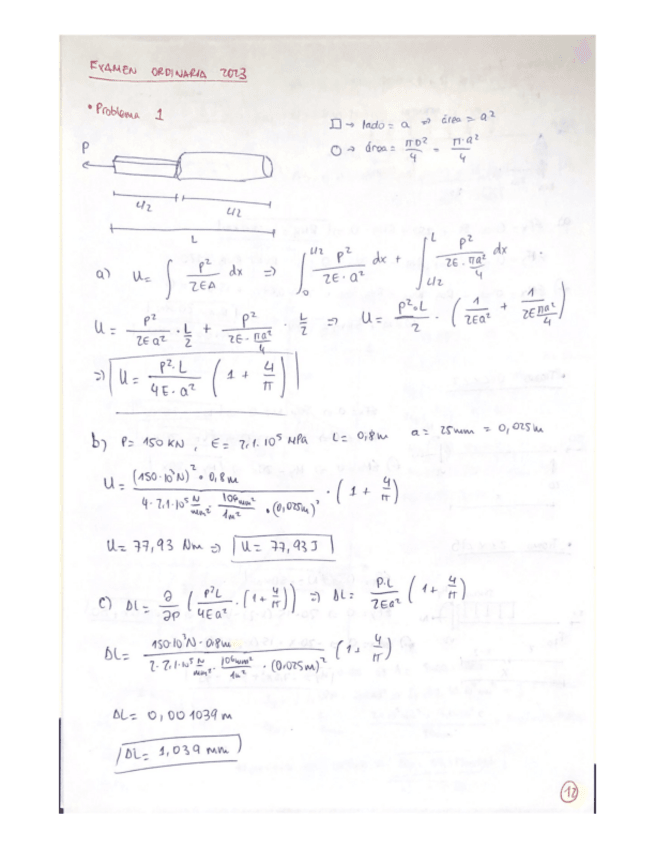 EXAMEN ORDINARIA 2023
• Problema 1
□ → lado = a ⇒ área = a²
○ → área = πD²/4 = π·a²/4
P
L/2 L/2
L
a) U = ∫ P²/2EA dx ⇒ ∫₀^L/2 P²/2E·a² dx + ∫_L/2^L P²/2E·πa²/4 dx
U = P²/2Ea² · L/2 + P²/2E·πa²/4 · L/2 ⇒ U = P²·L/2 · (1/2Ea² + 1/2Eπa²/4)
⇒ U = P²·L/4E·a² (1 + 4/π)
b) P = 150 KN, E = 2,1·10⁵ MPa L = 0,8m a = 25mm = 0,025m
U = (150·10³N)²·0,8m / 4·2,1·10⁵ N/mm² · 10⁶mm²/1m² · (0,025m)² · (1 + 4/π)
U = 77,93 Nm ⇒ U = 77,93 J
c) ΔL = ∂/∂P (P²L/4Ea² · (1 + 4/π)) ⇒ ΔL = P·L/2Ea² (1 + 4/π)
ΔL = 150·10³N·0,8m / 2·2,1·10⁵ N/mm² · 10⁶mm²/1m² · (0,025m)² (1 + 4/π)
ΔL = 0,001039 m
ΔL = 1,039 mm
12